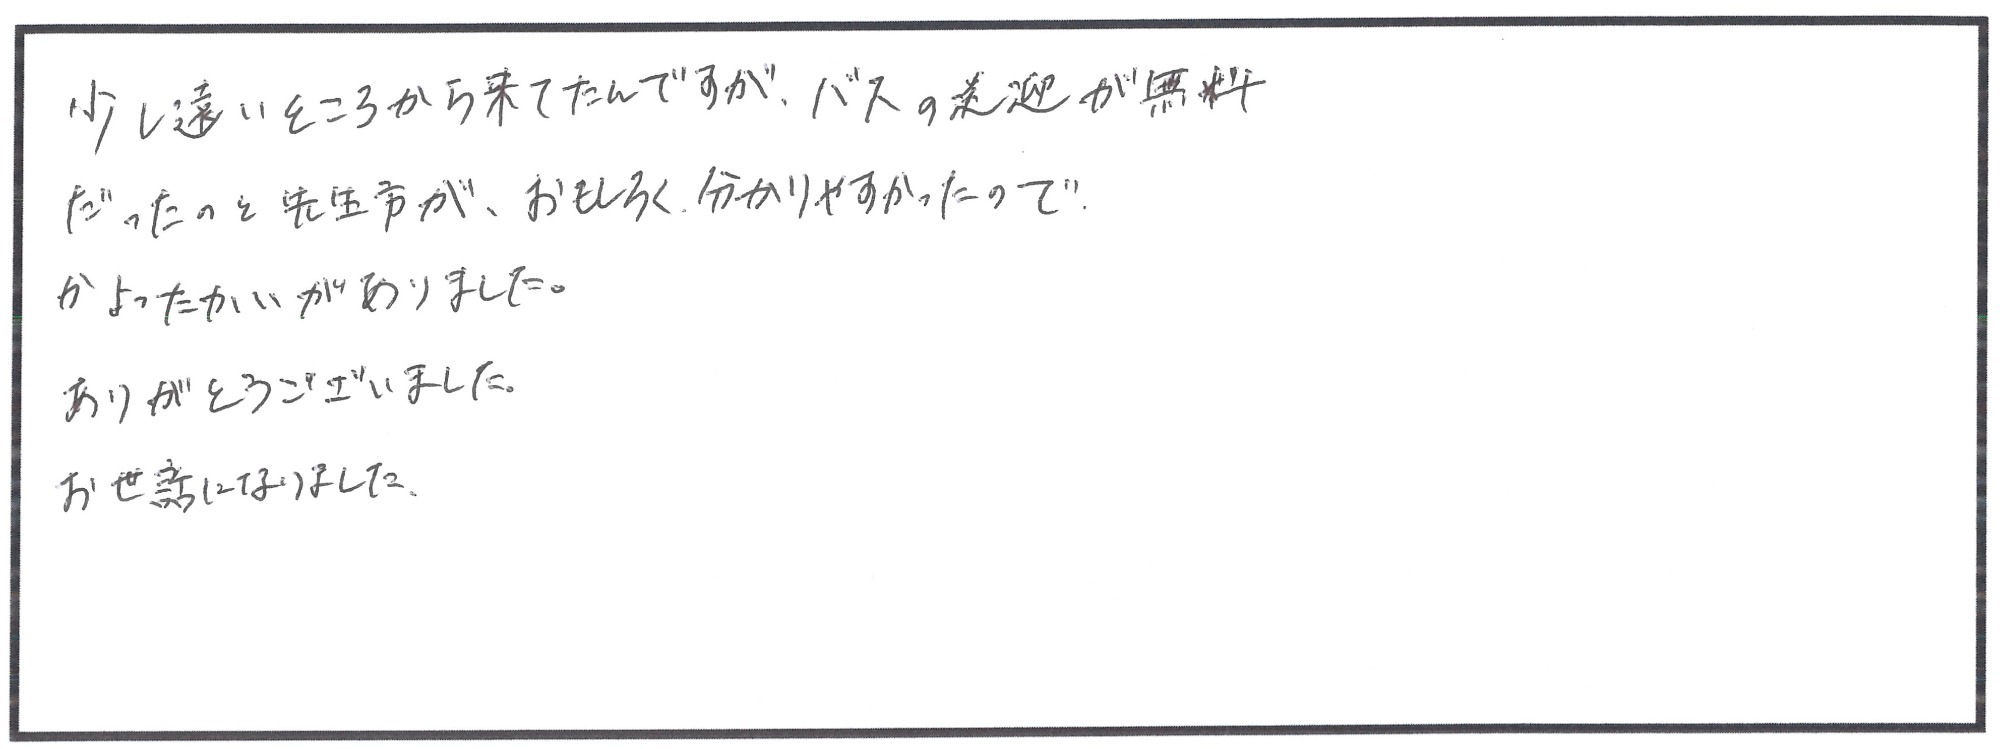 少し遠いところから来てたんですが、バスの送迎が無料
だったのと先生方が、おもしろく、分かりやすかったので、
かよったかいがありました。
ありがとうございました。
お世話になりました。